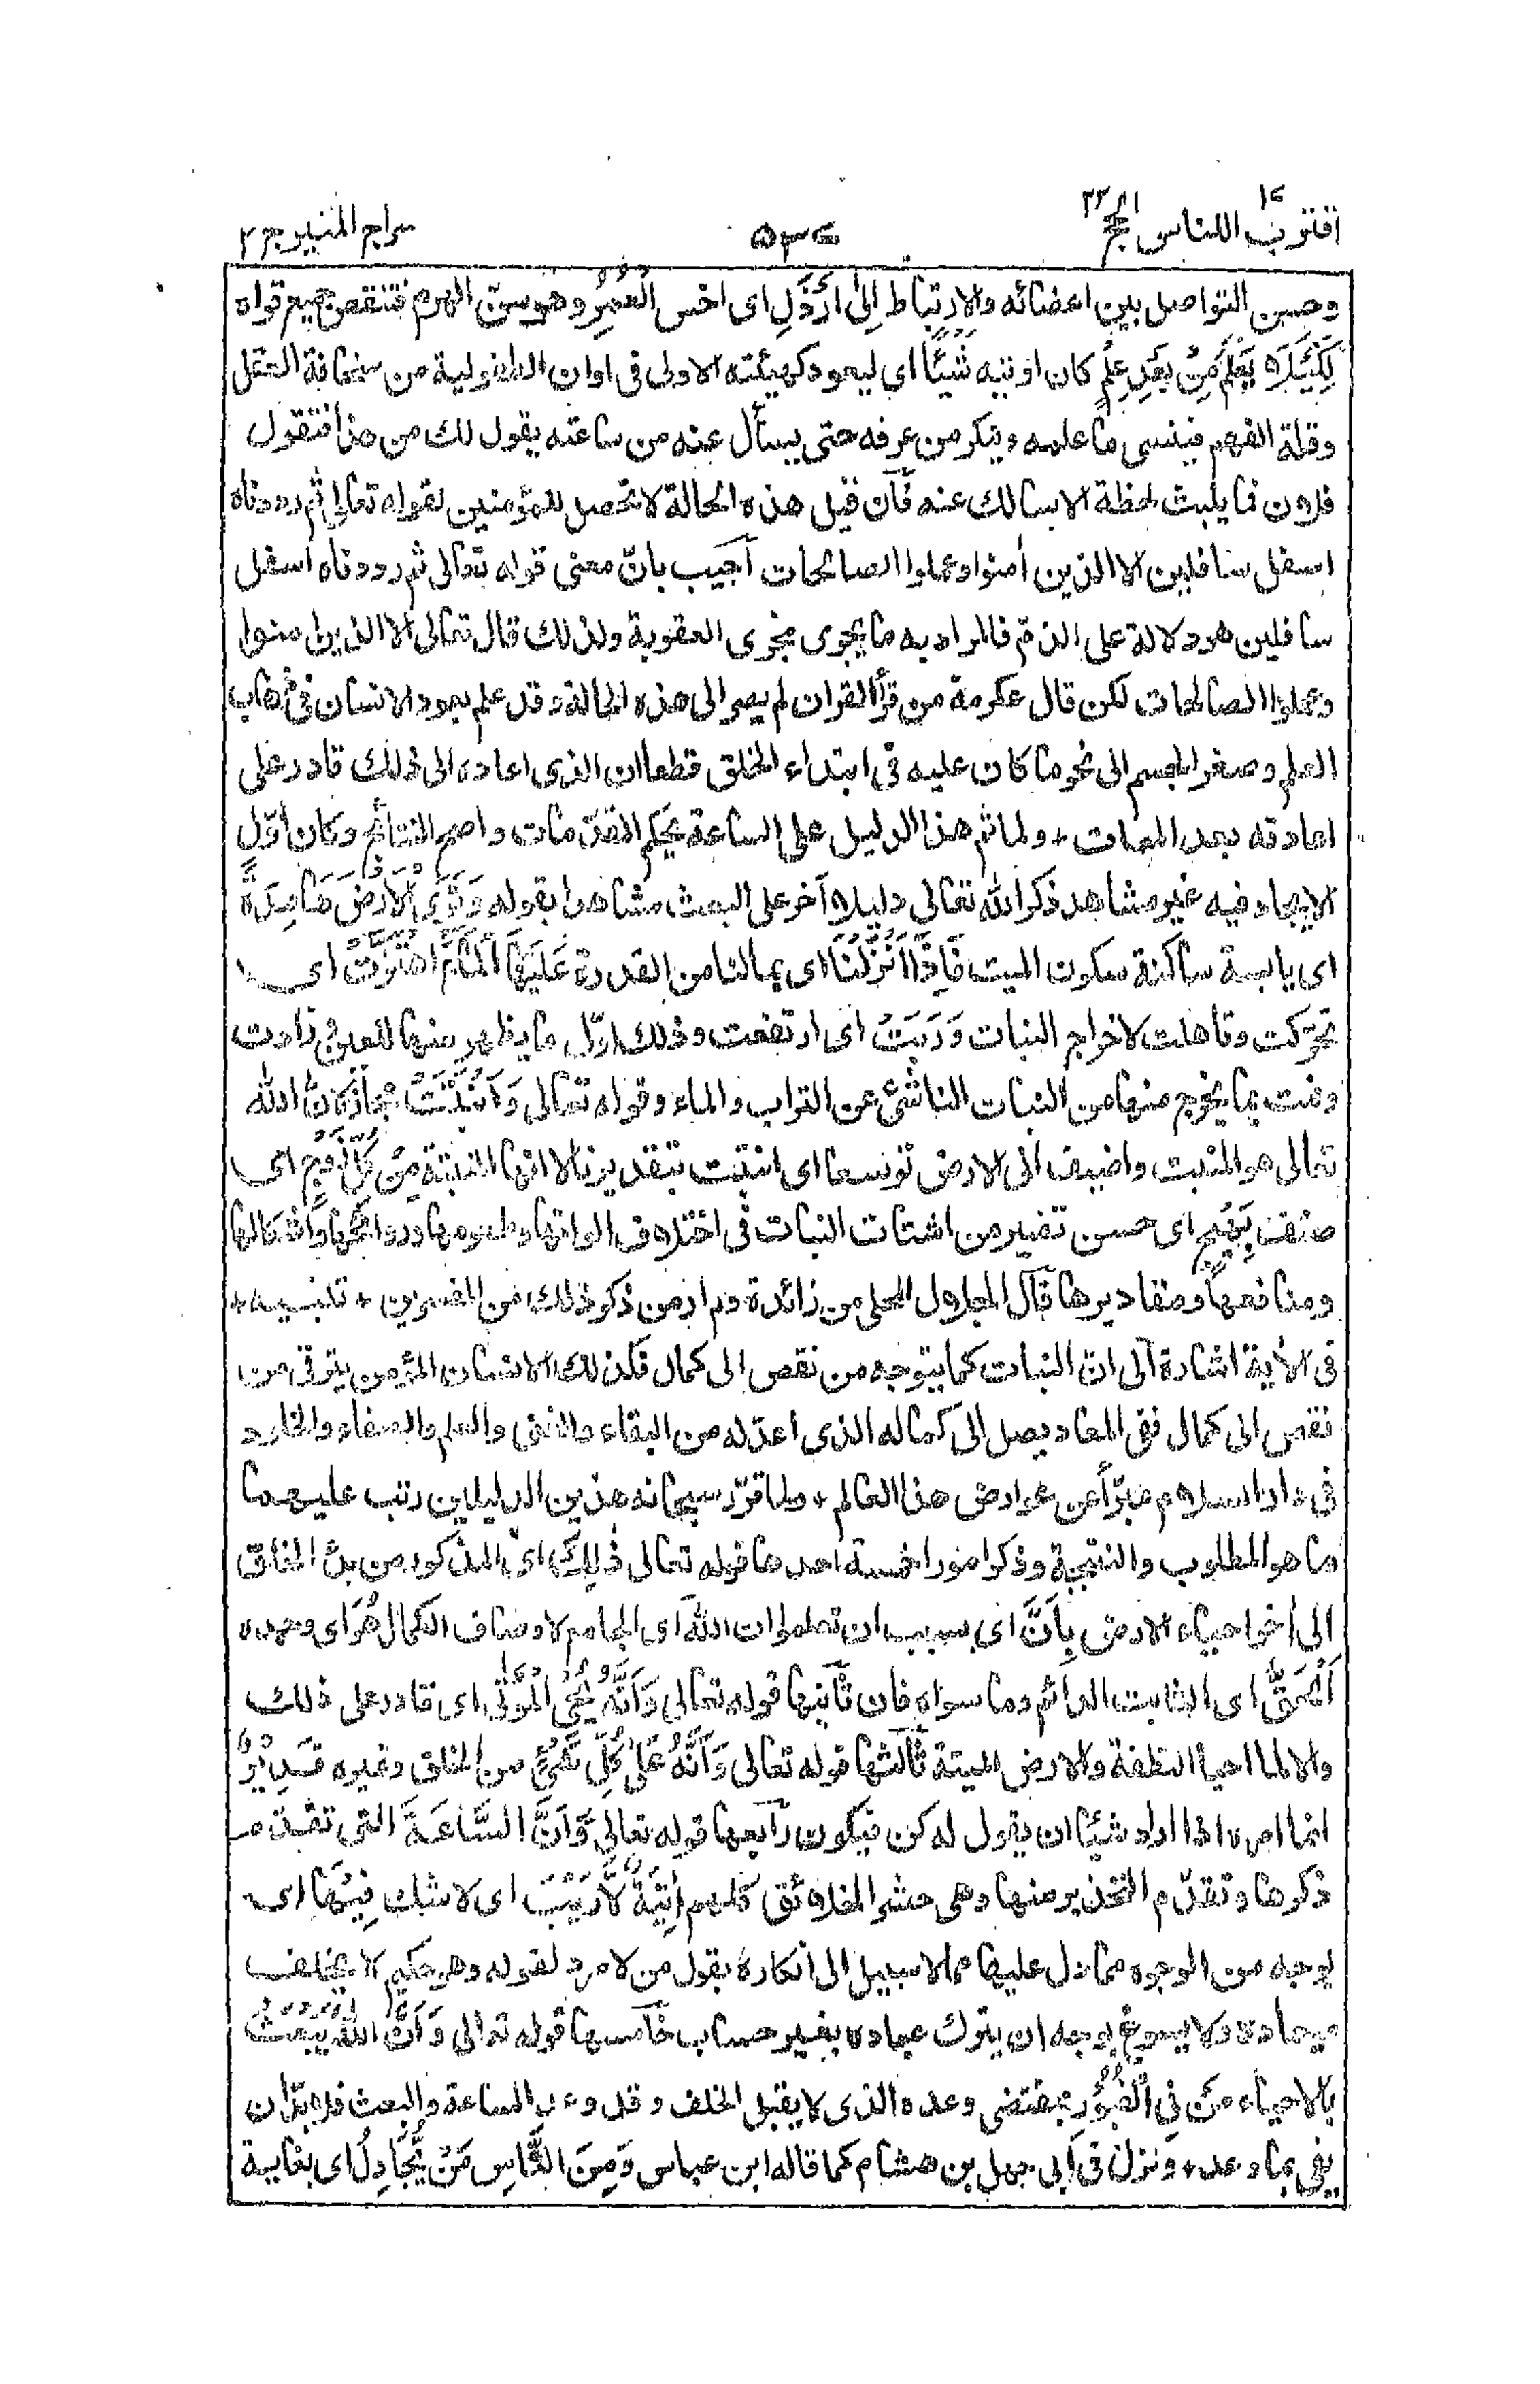 اقترب للناس ١٧ الحج ٢٢
٥٣٤
سراج المنير ج ٢
وحسن التواصل بين اعضائه والارتباط اِلٰى اَرْذَلِ اى اخس الْعُمُرِ وهو سن الهرم فتنقص جميع قواه
لِكَيْلَا يَعْلَمَ مِنْ بَعْدِ عِلْمٍ كان اوتيه شَيْئًا اى ليعود كهيئته الاولى فى اوان الطفولية من سخافة العقل
وقلة الفهم فينسى ما علمه وينكر من عرفه حتى يسأل عنه من ساعته يقول لك من هذا فتقول
فلان فما يلبث لحظة الا سالك عنه فان قيل هذه الحالة لا تحصل للمؤمنين لقوله تعالى ثم رددناه
اسفل سافلين الا الذين اٰمنوا وعملوا الصالحات اجيب بانّ معنى قوله تعالى ثم رددناه اسفل
سافلين هو دلالة على الذمّ فالمراد به ما يجرى مجرى العقوبة ولذلك قال تعالى الا الذين اٰمنوا
وعملوا الصالحات لكن قال عكرمة من قرأ القران لم يصر الى هذه الحالة وقد علم بعود الانسان فى ذهاب
العلم وصغر الجسم الى نحو ما كان عليه فى ابتداء الخلق قطعا ان الذى اعاده الى ذلك قادر على
اعادته بعد الممات + ولما تم هذا الدليل على الساعة بحكم المقدّمات واضح النتائج وكان اوّل
الايجاد فيه غير مشاهد ذكر الله تعالى دليلا آخر على البعث مشاهدا بقوله وَتَرَى الْاَرْضَ هَامِدَةً
اى يابسة ساكنة سكون الميت فَاِذَا اَنْزَلْنَا اى بما لنا من القدرة عَلَيْهَا الْمَآءَ اهْتَزَّتْ اى
تحرّكت وتاهلت لاخراج النبات وَرَبَتْ اى ارتفعت وذلك اوّل ما يظهر منها للعين وزادت
ونمت بما يخرج منها من النبات الناشئ عن التراب والماء وقوله تعالى وَاَنْبَتَتْ مجاز لانّ الله
تعالى هو المنبت واضيف الى الارض توسعا اى انبتت بتقديرنا لا انها المنبتة مِنْ كُلِّ زَوْجٍ اى
صنف بَهِيْجٍ اى حسن نضير من اشتات النبات فى اختلاف الوانها وطعومها وروائحها واشكالها
ومنافعها ومقاديرها قال الجلال المحلى من زائدة ولم ار من ذكر ذلك من المفسرين + تنبيه +
فى الاٰية اشارة الى انّ النبات كما يتوجه من نقص الى كمال فكذلك الانسان المؤمن يترقى من
نقص الى كمال ففى المعاد يصل الى كماله الذى اعدّ له من البقاء والغنى والعلم والصفاء والخلود
فى دار السلام مبرّأ عن عوارض هذا العالم + ولما قرّر سبحانه هذين الدليلين رتب عليهما
ما هو المطلوب والنتيجة وذكر امورا خمسة احدها قوله تعالى ذٰلِكَ اى المذكور من بدء الخلق
الى اٰخر احياء الارض بِاَنَّ اى بسبب ان تعلموا ان اللّٰهَ اى الجامع لاوصاف الكمال هُوَ اى وحده
الْحَقُّ اى الثابت الدائم وما سواه فان ثانيها قوله تعالى وَاَنَّهٗ يُحْيِ الْمَوْتٰى اى قادر على ذلك
والا لما احيا النطفة والارض الميتة ثالثها قوله تعالى وَاَنَّهٗ عَلٰى كُلِّ شَىْءٍ من الخلق وغيره قَدِيْرٌ
انما امره اذا اراد شيئا ان يقول له كن فيكون رابعها قوله تعالى وَاَنَّ السَّاعَةَ التى تقدّم
ذكرها وتقدّم التحذير منها وهى حشر الخلائق كلهم اٰتِيَةٌ لَّا رَيْبَ اى لا شك فِيْهَا اى
بوجه من الوجوه مما دل عليها مما لا سبيل الى انكاره بقول من لا مردّ لقوله وهو حكيم لا يخلف
ميعاده ولا يسوغ بوجه ان يترك عباده بغير حساب خامسها قوله تعالى وَاَنَّ اللّٰهَ يَبْعَثُ
بالاحياء مَنْ فِى الْقُبُوْرِ بمقتضى وعده الذى لا يقبل الخلف وقد وعد الساعة والبعث فلا بدّ ان
يفى بما وعد + ونزل فى ابى جهل بن هشام كما قاله ابن عباس وَمِنَ النَّاسِ مَنْ يُّجَادِلُ اى بغاية